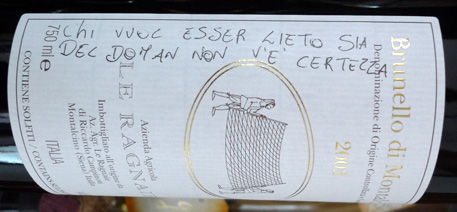 CHI VUOL ESSER LIETO SIA
DEL DOMAN NON V'È CERTEZZA
Brunello di
Denominazione di Origine
2009
LE RAGNA
Azienda Agricola
Imbottigliato all'origine da
Az. Agr. Le Ragnaie
di Riccardo Campinoti
Montalcino (Siena) Italia
ITALIA
750 ml e
CONTIENE SOLFITI /